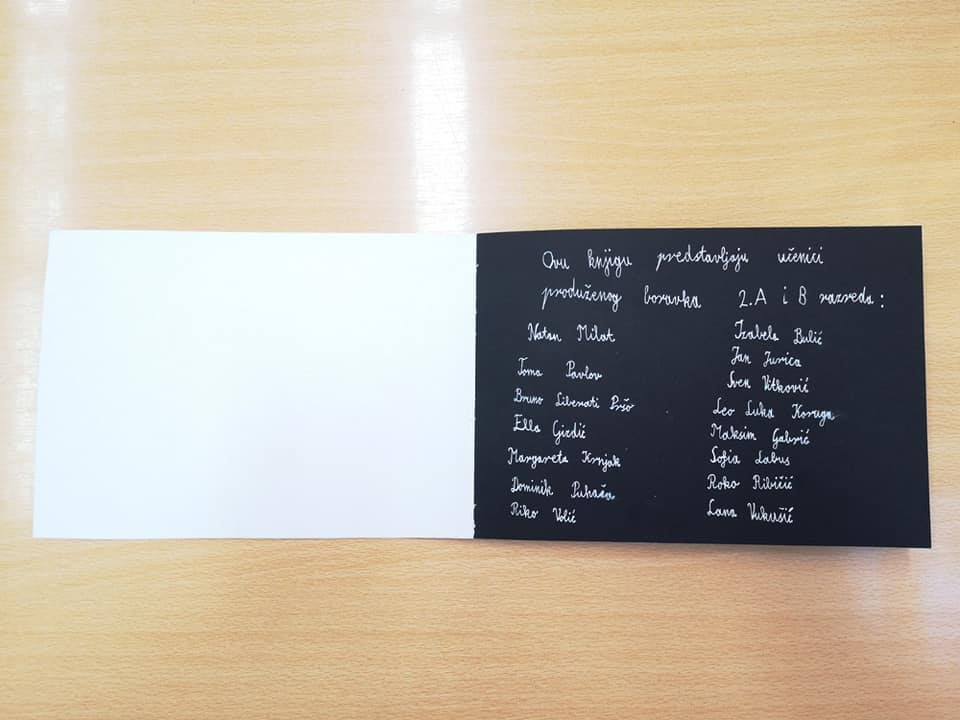 Ovu knjigu predstavljaju učenici
produženog boravka 2.A i B razreda:
Natan Milat
Toma Pavlov
Bruno Liberati Pršo
Ella Gizdić
Margareta Krnjak
Dominik Puhača
Riko Volić
Izabela Bulić
Jan Jurica
Sven Vitković
Leo Luka Koraga
Maksim Gabrić
Sofia Labus
Roko Ribičić
Lana Vukušić